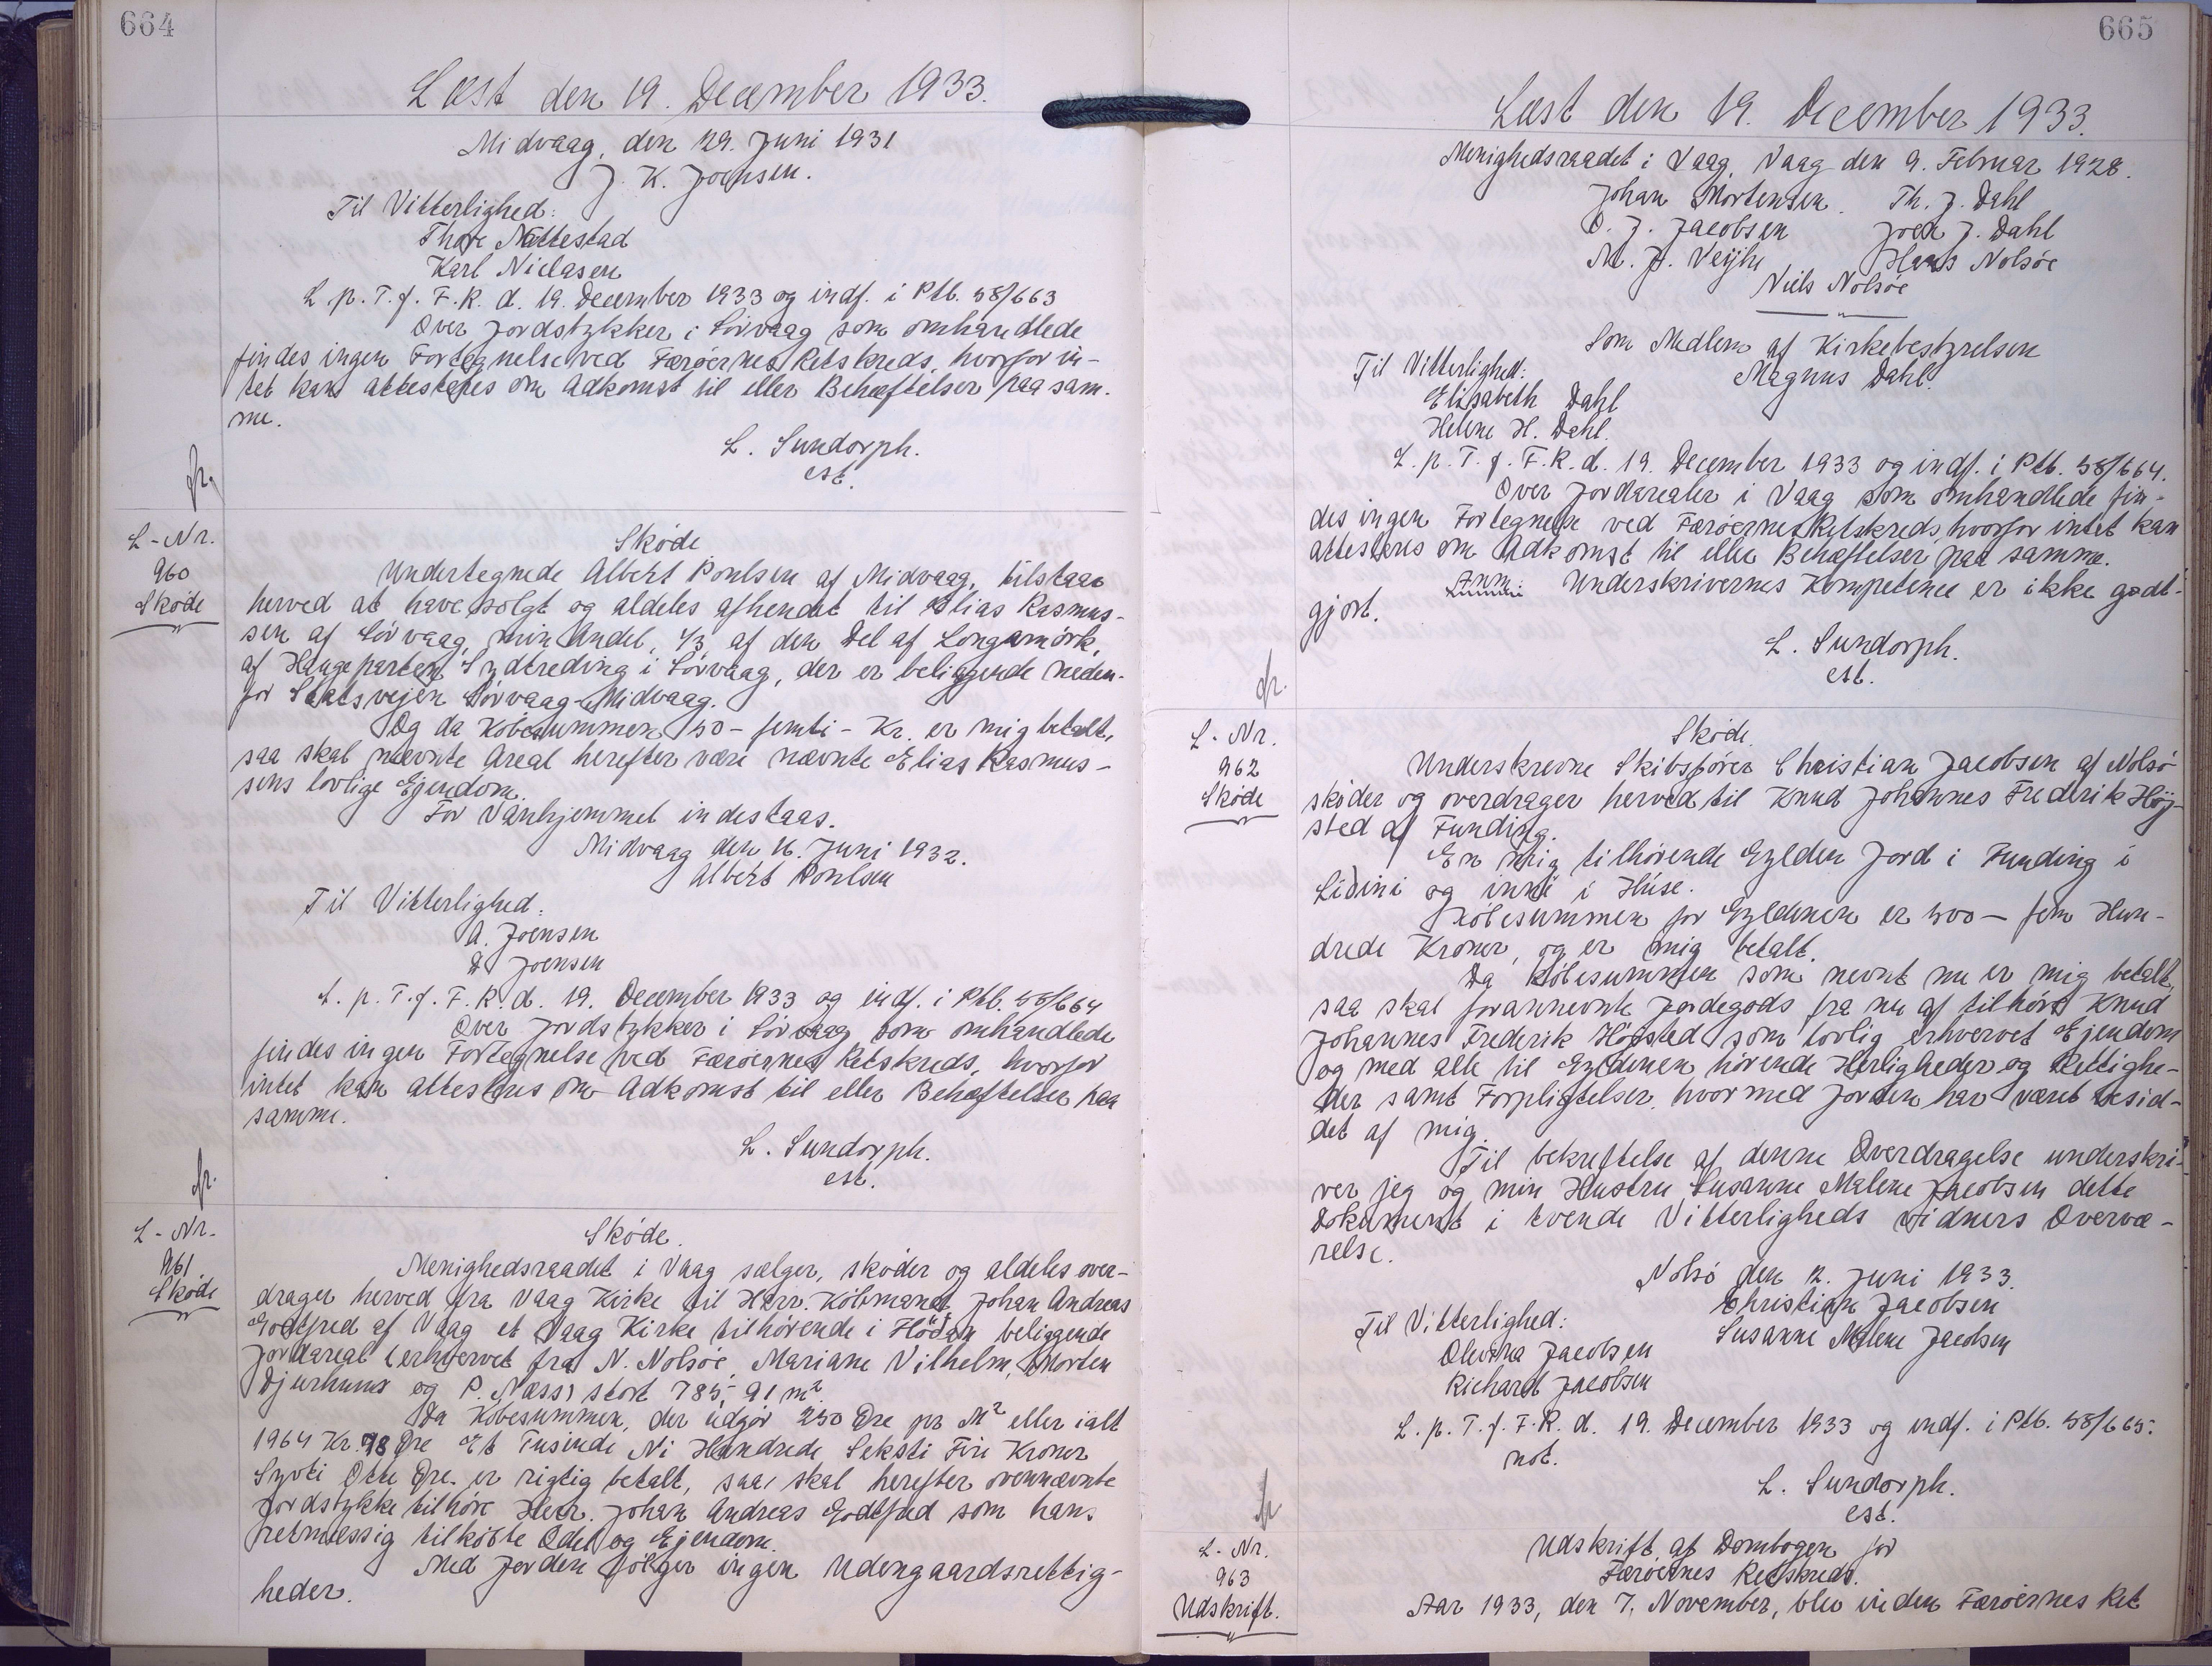 664
Læst den 19. December 1933.
Midvaag, den 29. Juni 1931
J. K. Joensen.
Til Vitterlighed:
Thore Nattestad
Karl Niclasen
L. p. T. f. F. R. d. 19. December 1933 og indf. i Ptb. 58/663
Over Jordstykker i Sörvaag som omhandlede
findes ingen Fortegnelse ved Færöernes Retskreds, hvorfor in-
tet kan attesteres om Adkomst til eller Behæftelser paa sam-
me.
L. Sundorph.
cst.
fr.
L-Nr.
960
Sköde
Sköde
Undertegnede Albert Poulsen af Midvaag, tilstaar
herved at have solgt og aldeles afhendet til Elias Rasmus-
sen af Sörvaag, min Andel, 1/3 af den Del af Longumörk,
af Haugeparten Sydtreding i Sörvaag, der er beliggende neden-
for Statsvejen Sörvaag-Midvaag.
Og da Köbesummen 50 - femti - Kr. er mig betalt,
saa skal nævnte Areal herefter være nævnte Elias Rasmus-
sens lovlige Ejendom.
For Vanhjemmel indestaas.
Midvaag den 16. Juni 1932.
Albert Poulsen
Til Vitterlighed:
A. Joensen
D. Joensen
L. p. T. f. F. R. d. 19. December 1933 og indf. i Ptb. 58/664
Over Jordstykker i Sörvaag som omhandlede
findes ingen Fortegnelse ved Færöernes Retskreds, hvorfor
intet kan attesteres om Adkomst til eller Behæftelser paa
samme.
L. Sundorph.
cst.
fr.
L-Nr.
961
Sköde
Sköde.
Menighedsraadet i Vaag sælger, sköder og aldeles over-
drager herved fra Vaag Kirke til Herr. Köbmand Johan Andreas
Godtfred af Vaag et Vaag Kirke tilhörende i beliggende
Jordareal (erhvervet fra N. Nolsöe, Mariane Vilhelm, Morten
Djurhuus og P. Næss) stort 785,91 m²
Da Köbesummen, der udgör 250 Öre pr M² eller ialt
1964 Kr. 78 Öre Et Tusinde Ni Hundrede Seksti Fire Kroner
Syvti Otte Öre. er rigtig betalt, saa skal herefter ovennævnte
Jordstykke tilhöre Herr. Johan Andreas Godtfred som hans
retmæssig tilköbte Odel og Ejendom.
Med Jorden fölger ingen Udengaardsrettig-
heder.
665
Læst den 19. December 1933.
Menighedsraadet i Vaag, Vaag den 9. Februar 1928.
Johan Mortensen. Th. J. Dahl
O. J. Jacobsen Joen J. Dahl
M. J. Veyhe Hans Nolsöe
Niels Nolsöe
Som Medlem af Kirkebestyrelsen
Magnus Dahl.
Til Vitterlighed:
Elisabeth Dahl
Helene H. Dahl.
L. p. T. f. F. R. d. 19. December 1933 og indf. i Ptb. 58/664.
Over Jordarealer i Vaag som omhandlede fin-
des ingen Fortegnelse ved Færöernes Retskreds, hvorfor intet kan
attesteres om Adkomst til eller Behæftelser paa samme.
Anm: Underskrivernes Kompetence er ikke godt-
gjort.
L. Sundorph.
cst.
fr.
L-Nr.
962
Sköde
Sköde.
Underskrevne Skibsförer Christian Jacobsen af Nolsö
sköder og overdrager herved til Knud Johannes Frederik Höj-
sted af Funding.
En mig tilhörende Gylden Jord i Funding i
Lidini og inni i Húse.
Köbesummen for Gyldenen er 500 - fem Hun-
drede Kroner, og er mig betalt.
Da Köbesummen som nevnt nu er mig betalt,
saa skal forannevnte Jordegods fra nu af tilhöre Knud
Johannes Frederik Höjsted som lovlig erhvervet Ejendom
og med alle til Gyldenen hörende Herligheder og Rettighe-
der samt Forpligtelser, hvormed Jorden har været besid-
det af mig.
Til bekræftelse af denne Overdragelse underskri-
ver jeg og min Hustru Susanne Malene Jacobsen dette
Dokument i tvende Vitterligheds vidners Overvæ-
relse.
Nolsö den 12. Juni 1933.
Christian Jacobsen
Susanne Malene Jacobsen
Til Vitterlighed:
Olevina Jacobsen
Richard Jacobsen
L. p. T. f. F. R. d. 19. December 1933 og indf. i Ptb. 58/665.
not.
L. Sundorph.
cst.
fr
L-Nr.
963
Udskrift.
Udskrift af Dombogen for
Færöernes Retskreds.
Aar 1933, den 7. November, blev inden Færöernes Ret